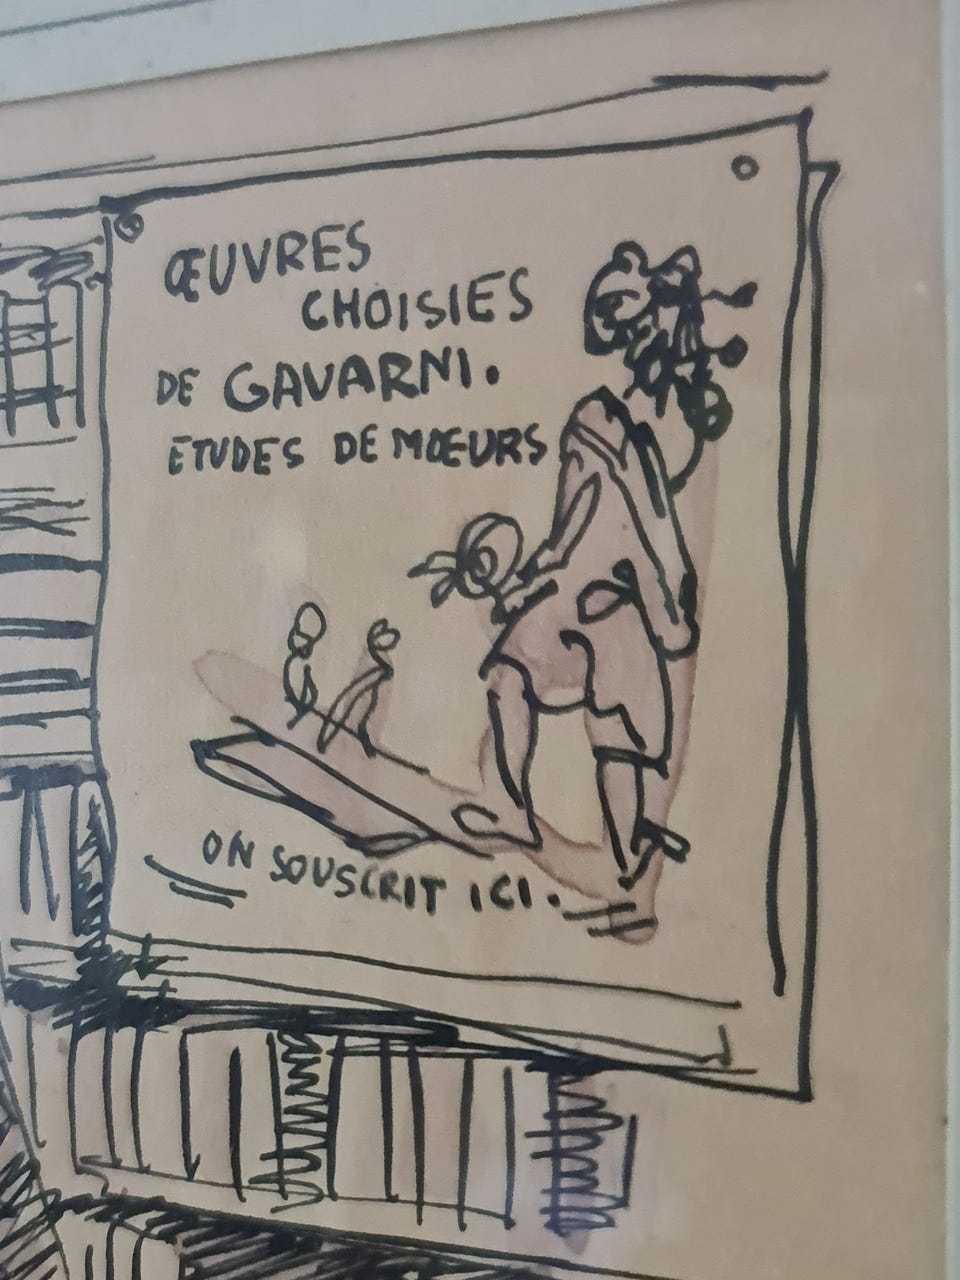 ŒUVRES
CHOISIES
DE GAVARNI.
ETUDES DE MŒURS
ON SOUSCRIT ICI.